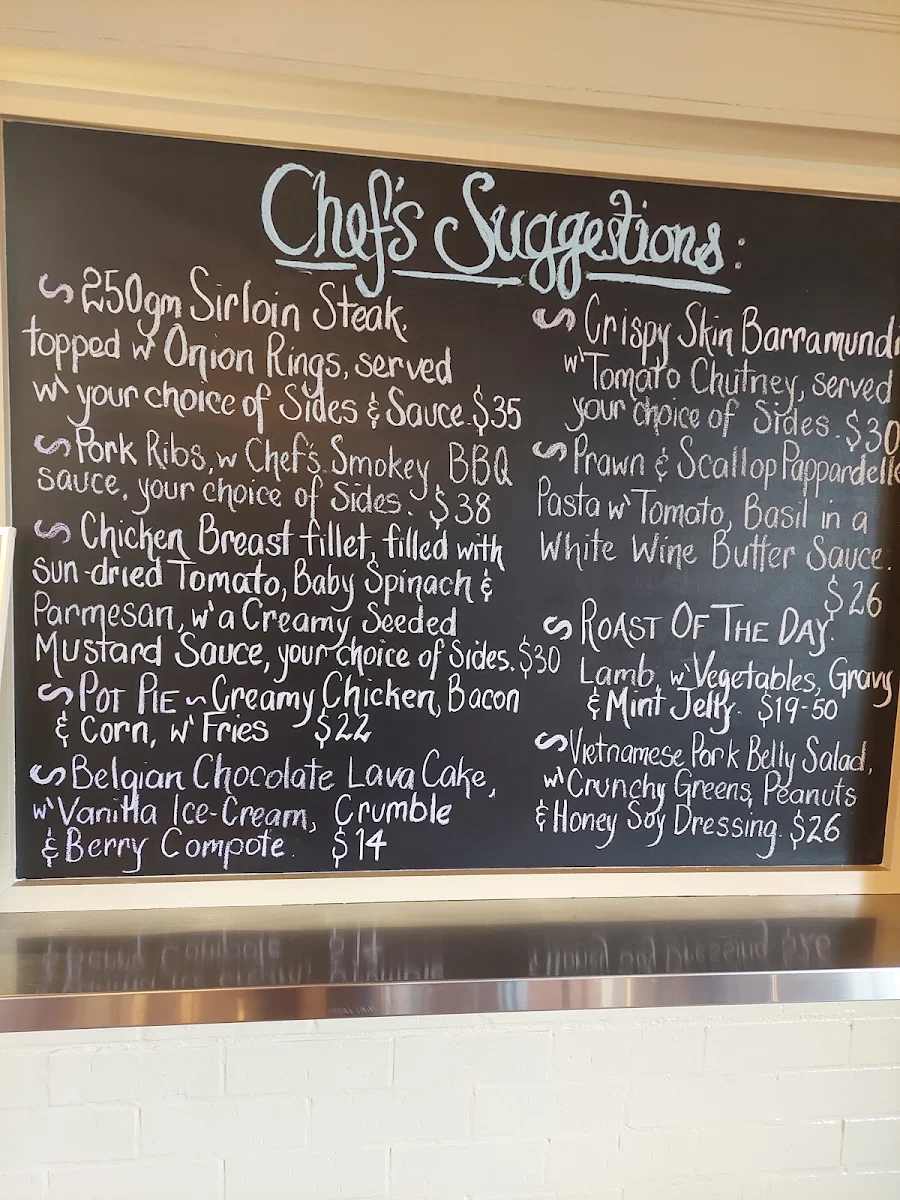 Chef's Suggestions:
250gm Sirloin Steak,
topped w' Onion Rings, served
w' your choice of Sides & Sauce. $35
Pork Ribs, w Chef's Smokey BBQ
sauce, your choice of Sides. $38
Chicken Breast fillet, filled with
sun-dried Tomato, Baby Spinach &
Parmesan, w' a Creamy Seeded
Mustard Sauce, your choice of Sides. $30
POT PIE ~ Creamy Chicken, Bacon
& Corn, w' Fries $22
Belgian Chocolate Lava Cake,
w' Vanilla Ice-Cream, Crumble
& Berry Compote. $14
Crispy Skin Barramundi
w' Tomato Chutney, served
your choice of Sides. $30
Prawn & Scallop Pappardelle
Pasta w' Tomato, Basil in a
White Wine Butter Sauce.
$26
ROAST OF THE DAY.
Lamb, w' Vegetables, Gravy
& Mint Jelly. $19-50
Vietnamese Pork Belly Salad,
w' Crunchy Greens, Peanuts
& Honey Soy Dressing. $26